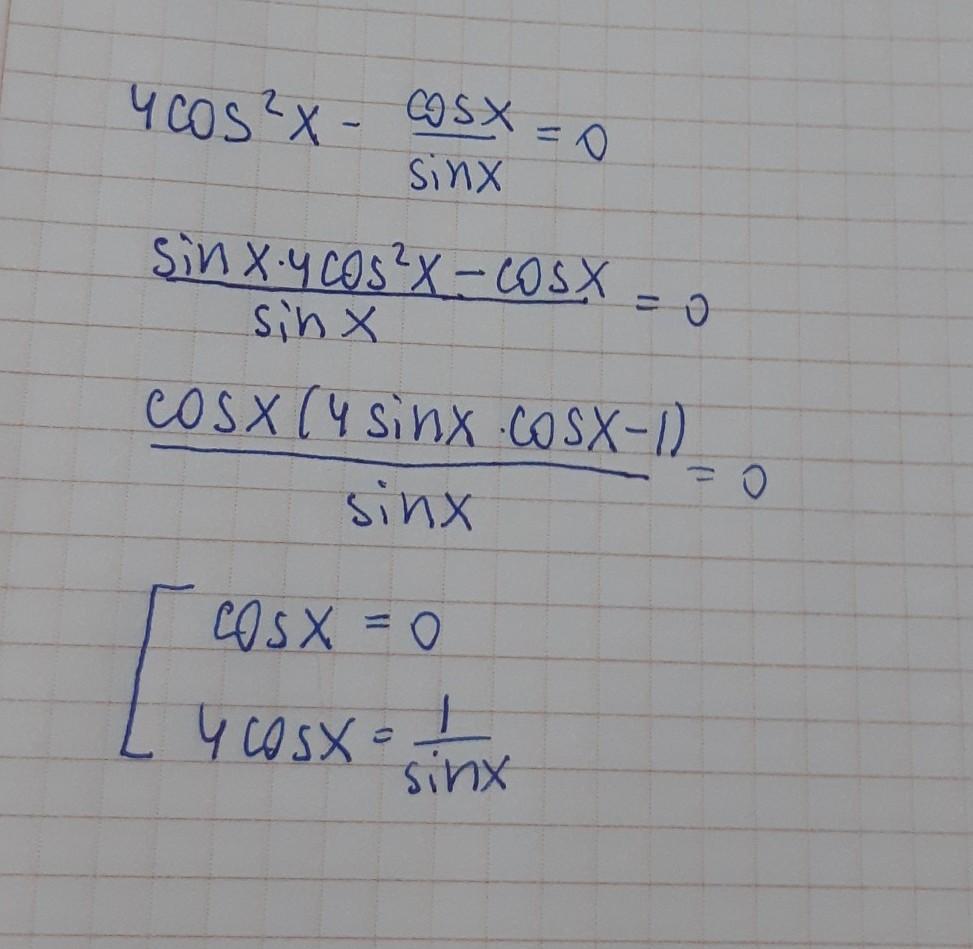 4cos²x - cosx/sinx = 0
sinx·4cos²x - cosx / sinx = 0
cosx(4sinx·cosx-1) / sinx = 0
[ cosx = 0
4cosx = 1/sinx